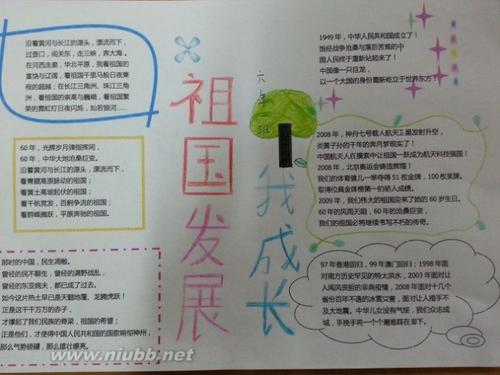 沿着黄河与长江的源头，漂流而下，
过壶口，闯关东，走三峡，奔大海。
在河西走廊，华北平原，我看祖国的
富饶与辽阔，看祖国千里马般日夜兼
程的超越；在长江三角洲，珠江三角
洲，看祖国的崇高与巍峨，看祖国繁
荣的霓虹灯日夜闪烁，灿若银河……
60年，光辉岁月弹指挥间，
60年，中华大地沧桑巨变。
沿着黄河与长江的源头，漂流而下，
看青藏高原脉动的祖国；
看黄土高坡起伏的祖国；
看千帆竞发，百舸争流的祖国；
看群峰腾跃，平原奔驰的祖国。
那时的中国，民生凋敝。
曾经的民不聊生，曾经的满野战乱，
曾经的东亚病夫，都已成了过去。
如今这片热土早已是天翻地覆、龙腾虎跃！
正是这千千万万的赤子，
才撑起了我们民族的脊梁，祖国的希望；
正是他们，才使得中国人民共和国的国歌响彻神州，
那么气势磅礴，那么雄壮嘹亮。
祖国发展
六年二班
我成长
1949年，中华人民共和国成立了！
饱经战争沧桑与落后苦难的中
国人民终于重新站起来了！
中国像一只巨龙，
以一个大国的身份重新屹立于世界东方！
2008年，神舟七号载人航天卫星发射升空，
炎黄子孙的千年的奔月梦现实了！
中国航天人在摸索中让祖国一跃成为航天科技强国！
2008年，北京奥运会铸造辉煌！
我们的体育健儿一举夺得51枚金牌，100枚奖牌。
取得位具金牌榜第一的骄人成绩。
2009年，我们伟大的祖国迎来了她的60岁生日。
60年的风雨无阻，60年的沧桑变，
我们的祖国必将继续书写不朽的传奇。
97年香港回归，99年澳门回归；1998年面
对南方历史罕见的特大洪水，2003年面对让
人闻风丧胆的非典疫情，2008年面对十几个
省份百年不遇的冰雪灾害，面对让人措手不
及大地震。中华儿女没有气馁，我们众志成
城，手挽手将一个个磨难踩在脚下。
www.niubb.net